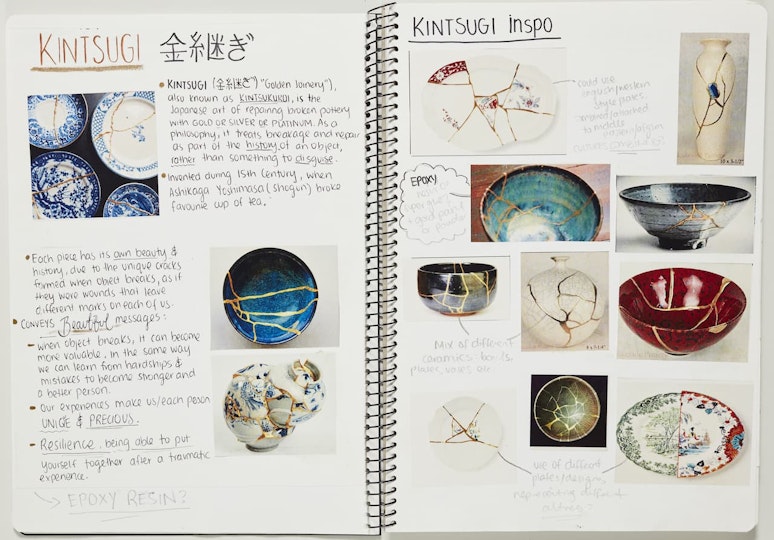 KINTSUGI 金継ぎ
• KINTSUGI (金継ぎ) "Golden Joinery"),
also known as KINTSUKUROI, is the
Japanese art of repairing broken pottery
with GOLD OR SILVER OR PLATINUM. As a
philosophy, it treats breakage and repair
as part of the history of an object,
rather than something to disguise.
• Invented during 15th Century, when
Ashikaga Yoshimasa (shogun) broke
favourite cup of tea.
• Each piece has its own beauty &
history, due to the unique cracks
formed when object breaks, as if
they were wounds that leave
different marks on each of us.
• CONVEYS Beautiful messages:
- when object breaks, it can become
more valuable. In the same way
we can learn from hardships &
mistakes to become stronger and
a better person.
- Our experiences make us/each person
UNIQE & PRECIOUS.
- Resilience, being able to put
yourself together after a traumatic
experience.
EPOXY RESIN?
KINTSUGI inspo
could use
style plates
to middle
EPOXY
gold paint
Mix of different
ceramics- bowls,
plates, vases etc.
use of different
plates/designs,
representing different